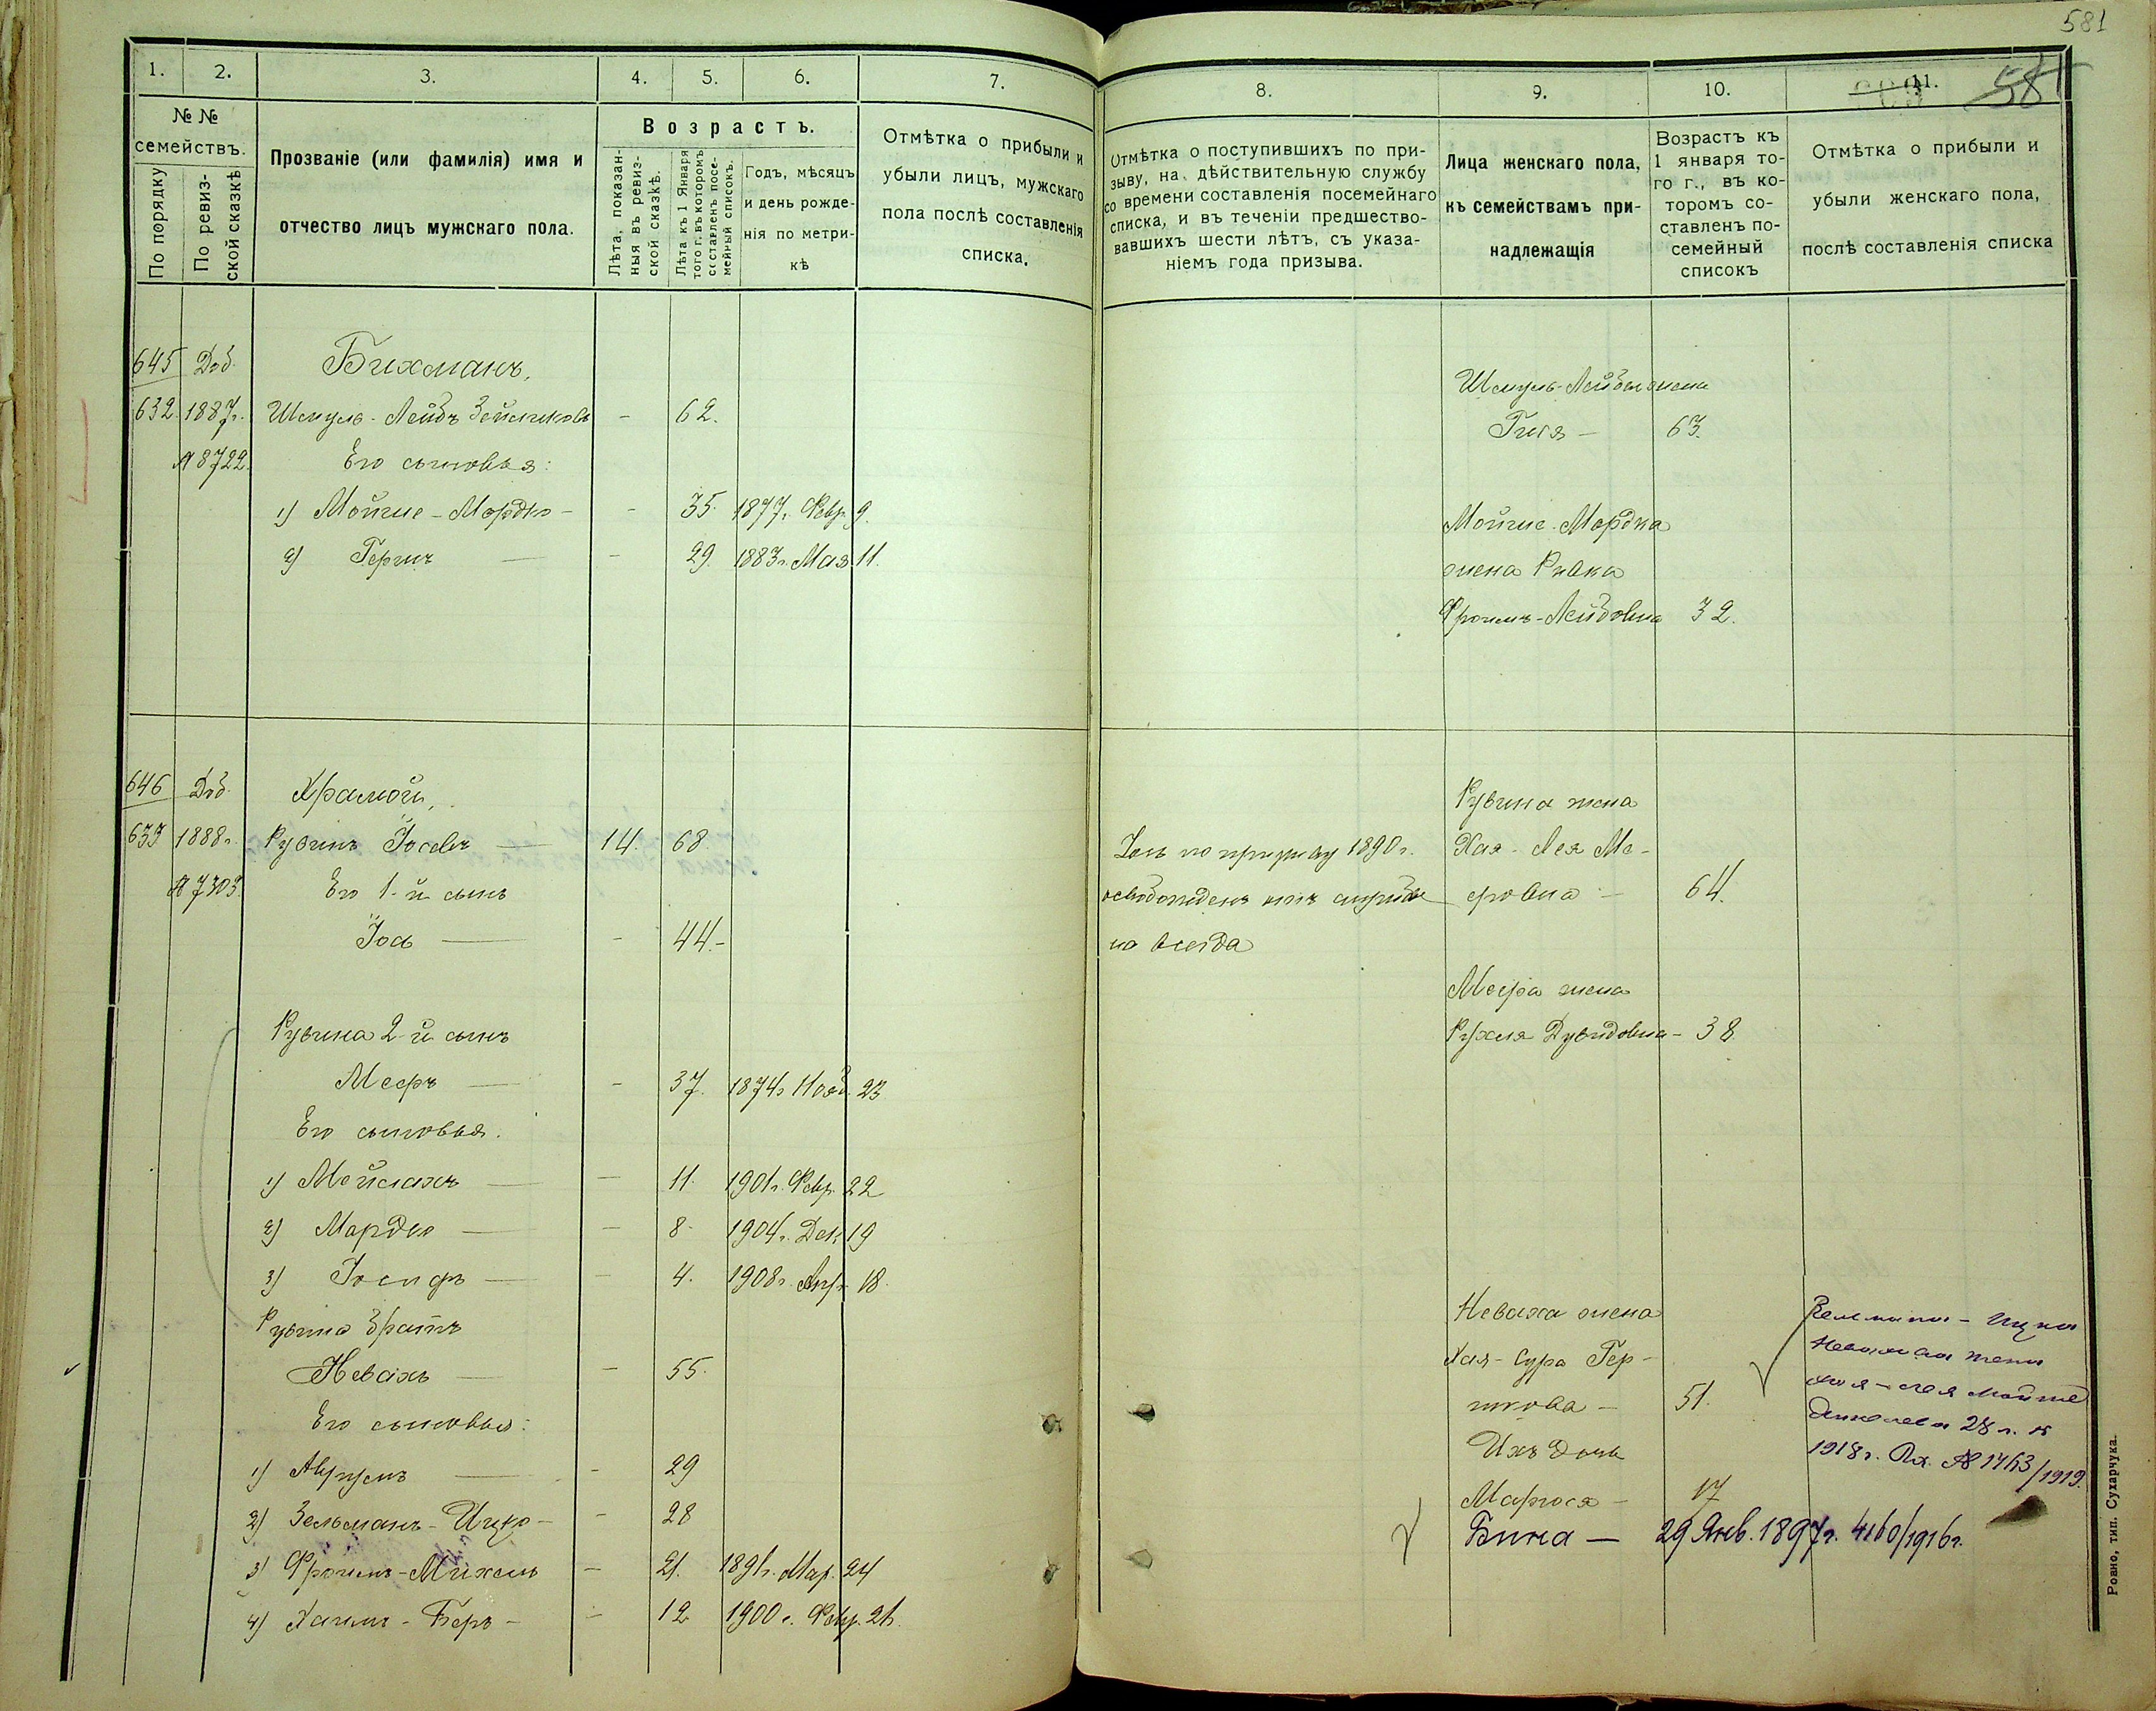 581
1. 2. 3. 4. 5. 6. 7.
№ № семействъ.
По порядку
По ревизской сказкѣ
Прозваніе (или фамилія) имя и
отчество лицъ мужскаго пола.
Возрастъ.
Лѣта, показан-
ныя въ ревиз-
ской сказкѣ.
Лѣта къ 1 Января
того г. въ которомъ
составленъ посе-
мейный списокъ.
Годъ, мѣсяцъ
и день рожде-
нія по метри-
кѣ
Отмѣтка о прибыли и
убыли лицъ, мужскаго
пола послѣ составленія
списка.
645 Доб. Бихманъ,
632. 1887г. Шмуль-Лейбъ Зейликовъ - 62.
№ 8722. Его сыновья:
1) Мойше-Мордко - - 35. 1877г. Февр. 9.
2) Гершъ - - 29. 1883г. Мая 11.
646 Доб. Храмой,
633 1888г. Рувинъ Іосевъ - 14. 68
№ 7303. Его 1-й сынъ
Іось - - 44.-
Рувина 2-й сынъ
Мееръ - - 37. 1874г. Нояб. 23
Его сыновья.
1) Мейлахъ - - 11. 1901г. Февр. 22
2) Мордко - - 8. 1904г. Дек. 19
3) Іосифъ - - 4. 1908г. Апр. 18.
Рувина братъ
Невахъ - - 55.
Его сыновья:
1) Аврумъ - - 29
2) Зельманъ-Ицко - - 28
3) Фроимъ-Михель - 21. 1891г. Мар. 24
4) Хаимъ-Беръ - - 12 1900г. Февр. 21.
8. 9. 10. 11. 581
Отмѣтка о поступившихъ по при-
зыву, на дѣйствительную службу
со времени составленія посемейнаго
списка, и въ теченіи предшество-
вавшихъ шести лѣтъ, съ указа-
ніемъ года призыва.
Лица женскаго пола,
къ семействамъ при-
надлежащія
Возрастъ къ
1 января то-
го г., въ ко-
торомъ со-
ставленъ по-
семейный
списокъ
Отмѣтка о прибыли и
убыли женскаго пола,
послѣ составленія списка
Шмуль-Лейбы жена
Гися - 63.
Мойше-Мордка
жена Ривка
Фроимъ-Лейбовна 32.
Рувина жена
Іось по призыву 1890г. Хая-Лея Ме-
освобожденъ отъ службы еровна - 64.
на всегда
Меера жена
Рухля Дувидовна - 38
Неваха жена
Хая-Сура Гер-
шкова - 51.
Ихъ дочь
Маріося - 17
Бина - 29 Янв. 1897г. 4160/1916г.
Зельмана-Ицка
Невахова жена
Хая-Лея Мойше
28 л. к
1918г. Вх. № 1763/1919.
Ровно, тип. Сухарчука.